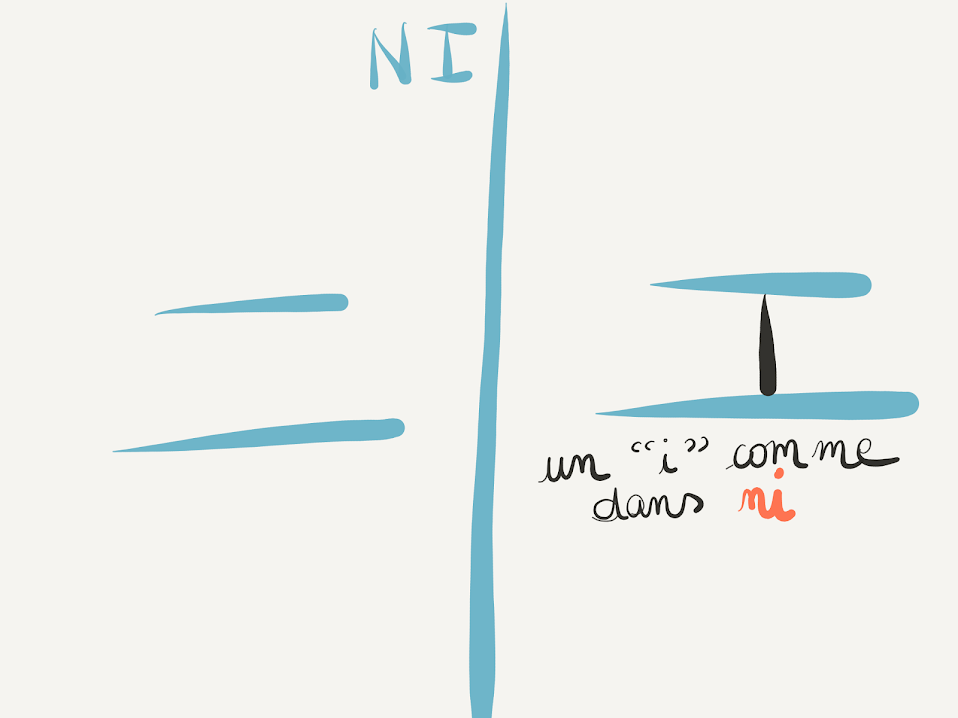 NI
ニ
un “i” comme
dans ni